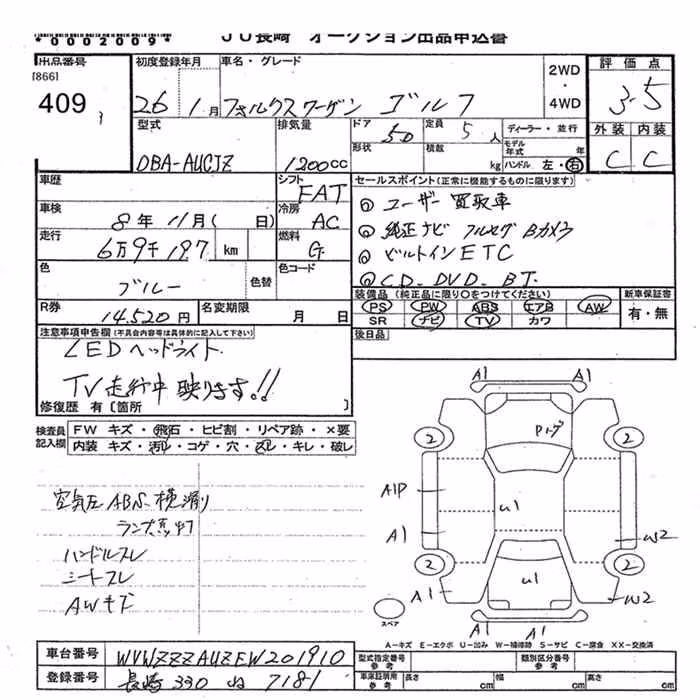 *0002009* JU長崎 オークション出品申込書
出品番号 初度登録年月 車名・グレード 2WD・4WD 評価点
[866]
409 26年 1月 フォルクスワーゲン ゴルフ 3.5
型式 排気量 ドア 定員 ディーラー・並行 外装 内装
DBA-AUCJZ 1200cc 5D 5人 モデル年式 年 C C
形状 積載 kg ハンドル 左・右
車歴 シフト FAT セールスポイント(正常に機能するものに限ります)
◎ユーザー買取車
車検 8年 11月( 日) 冷房 AC
◎純正ナビ フルセグ Bカメラ
走行 6万9千197 km 燃料 G.
◎ビルトインETC
色 ブルー 色替 色コード
◎CD.DVD.BT.
R券 14,520円 名変期限 月 日
装備品(純正品に限り○をつけてください) 新車保証書
PS PW ABS エアB AW 有・無
SR ナビ TV カワ
注意事項申告欄(不具合内容等は具体的に記入して下さい) 後日品
LEDヘッドライト
TV走行中映ります!!
修復歴 有〔箇所 〕
検査員記入欄 FW キズ・飛石・ヒビ割・リペア跡・×要
内装 キズ・汚れ・コゲ・穴・スレ・キレ・破レ
A1 A1
2 2
Pログ
A1P
u1
A1 W2
2 2
u1
A1 W2
A1 A1
空気圧 ABS.横滑り
ランプ点灯
ハンドルスレ
シートスレ
AWキズ
スペア
A－キズ E－エクボ U－凹み W－補修跡 S－サビ C－腐食 XX－交換済
車台番号 WVWZZZAUZEW201910 型式指定番号 参考 類別区分番号 参考
登録番号 長崎 330 ぬ 7181 車庫証明用 参考 長さ cm 幅 cm 高さ cm